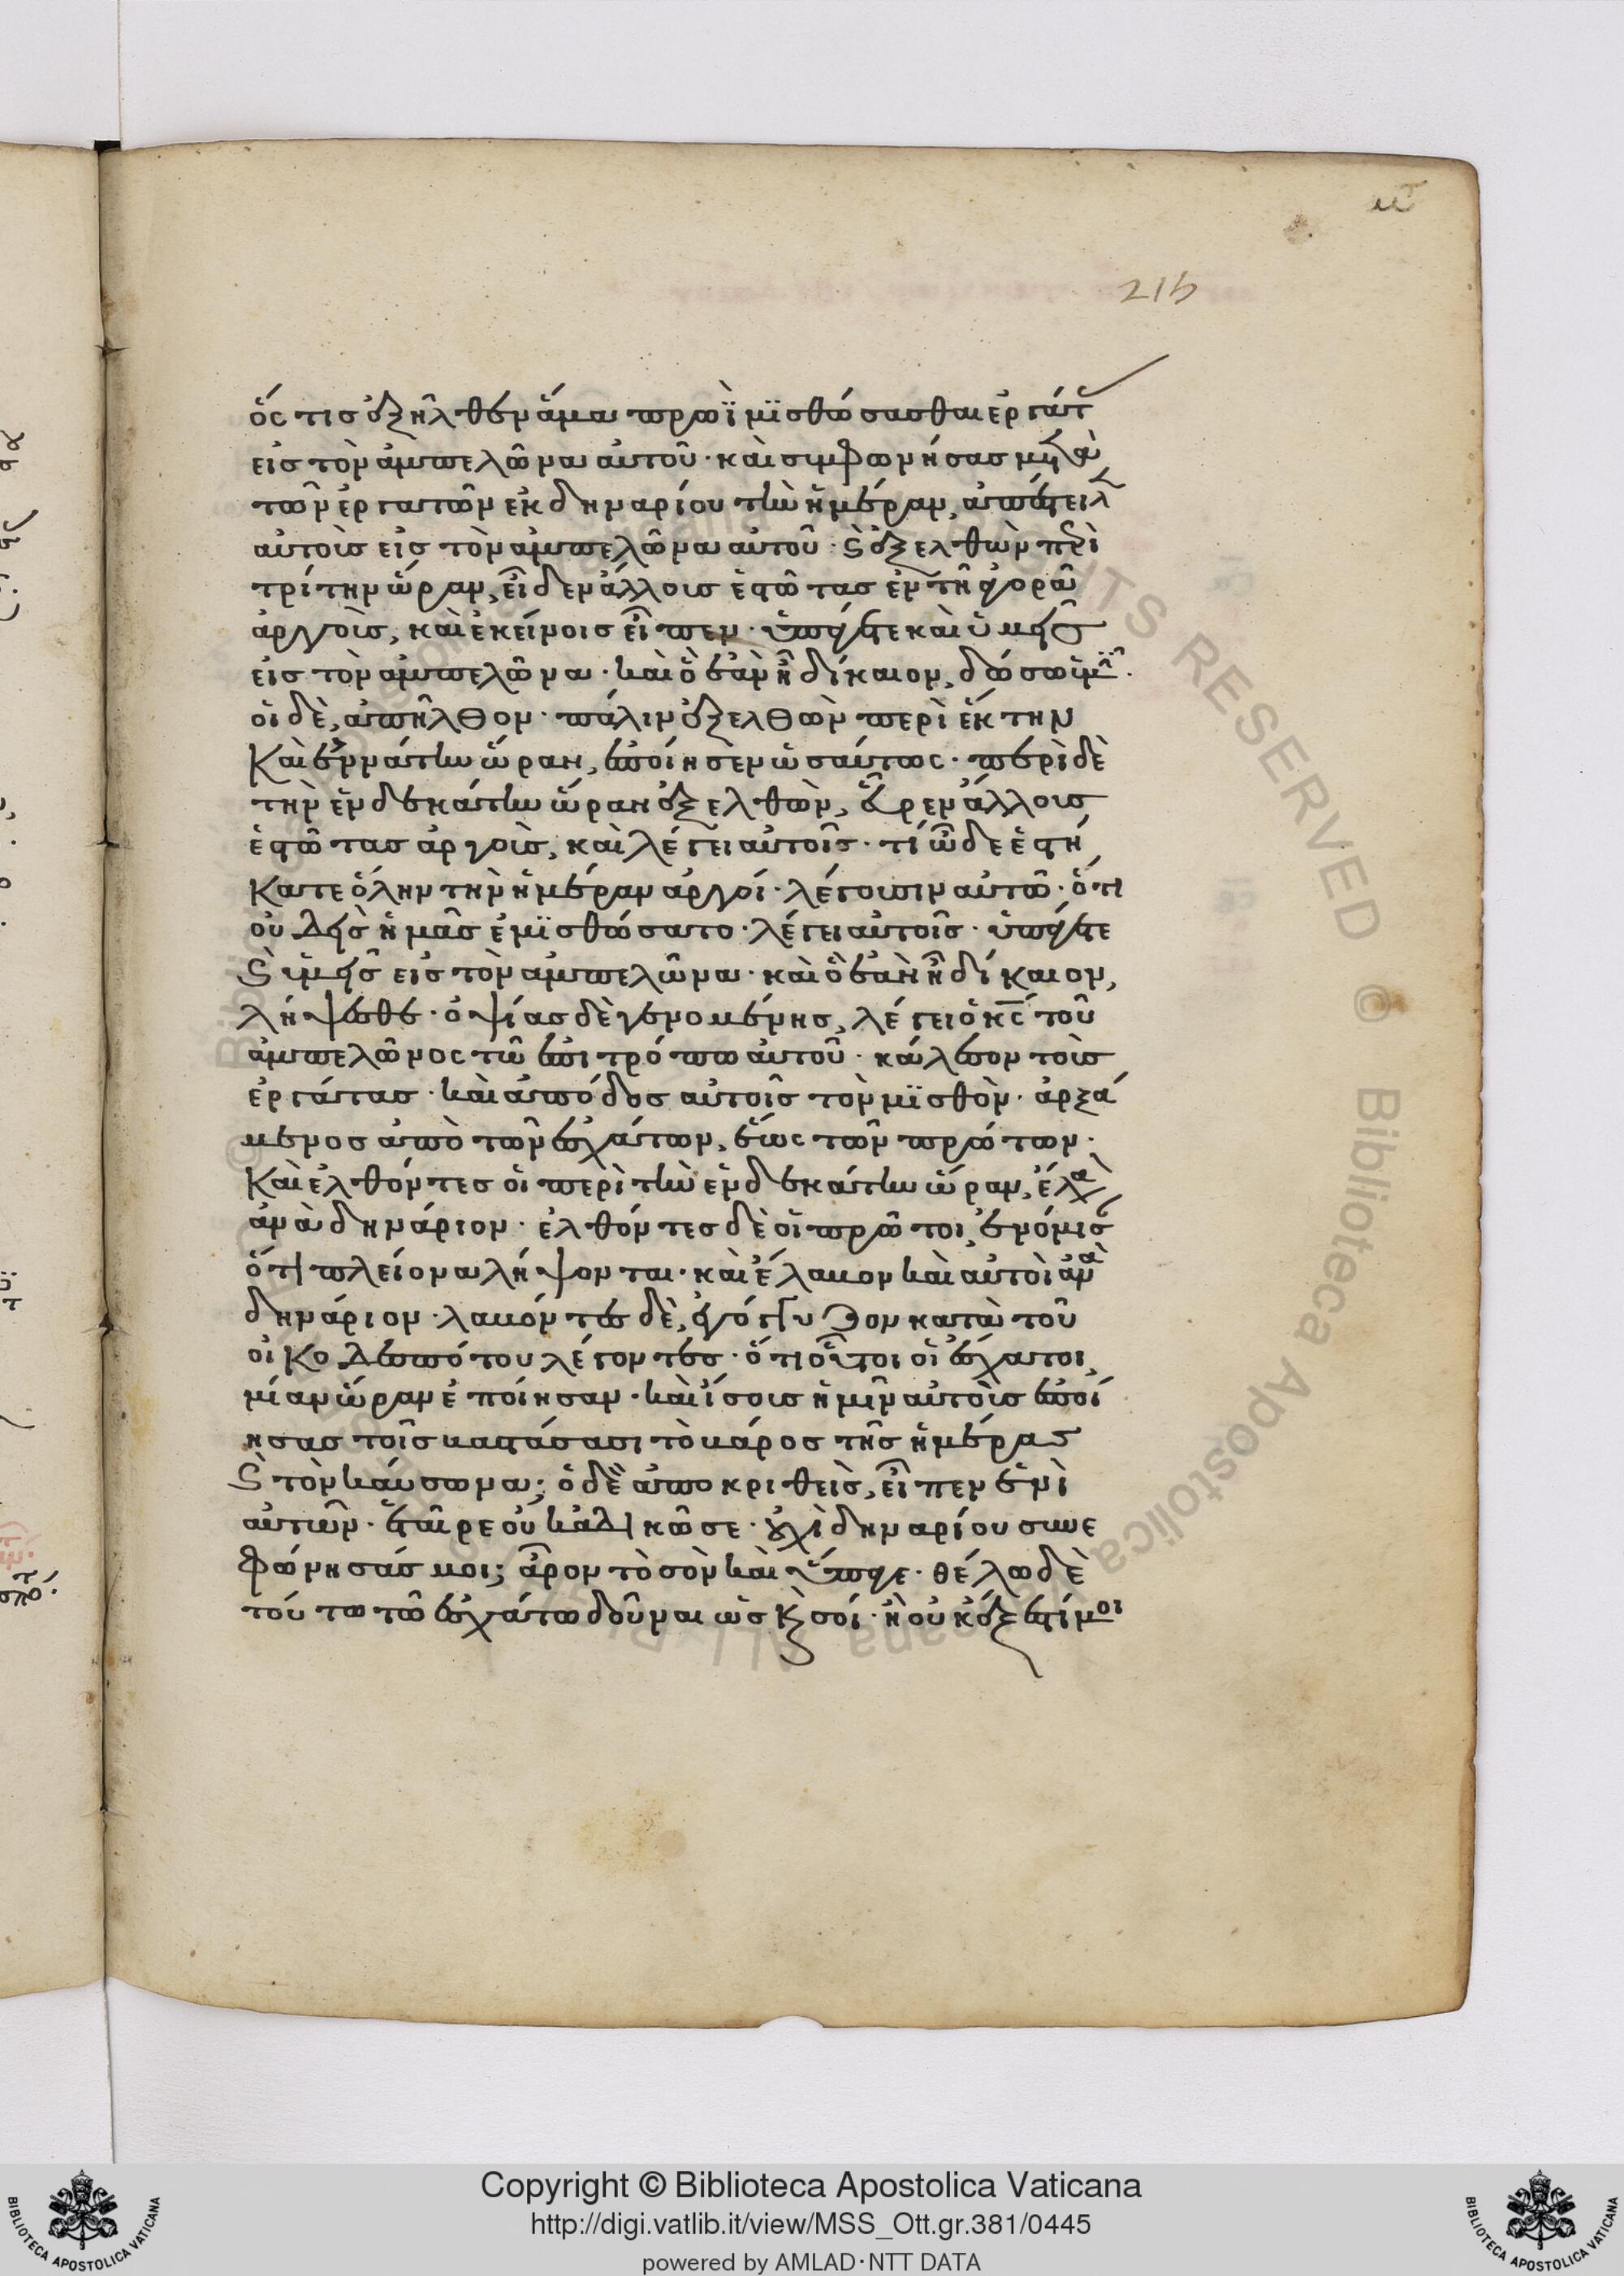 216
ὅστις ἐξῆλθεν ἅμα πρωῒ μϊσθώσασθαι ἐργάτ
εἰς τὸν ἀμπελῶνα αὐτοῦ· καὶ συμφωνήσας μετὰ
τῶν ἐργατῶν ἐκ δηναρίου τὴν ἡμέραν, ἀπέστειλ
αὐτοὺς εἰς τὸν ἀμπελῶνα αὐτοῦ· καὶ ἐξελθὼν περὶ
τρίτην ὥραν, εἶδεν ἄλλους ἑστῶτας ἐν τῇ ἀγορᾷ
ἀργοὺς, καὶ ἐκείνοις εἶπεν· ὑπάγετε καὶ ὑμεῖς
εἰς τὸν ἀμπελῶνα· καὶ ὃ ἐὰν ἦ δίκαιον, δώσω ὑμῖν.
οἱ δὲ, ἀπῆλθον· πάλιν ἐξελθὼν περὶ ἕκτην
Καὶ ἐννάτην ὥραν, ἐποίησεν ὡσαύτως· περὶ δὲ
τὴν ἑνδεκάτην ὥραν ἐξελθὼν, εὗρεν ἄλλους
ἑστῶτας ἀργοὺς, καὶ λέγει αὐτοῖς· τί ὧδε ἑστή
κατε ὅλην τὴν ἡμέραν ἀργοί· λέγουσιν αὐτῶ· ὅτι
οὐδεὶς ἡμᾶς ἐμϊσθώσατο· λέγει αὐτοῖς· ὑπάγετε
καὶ ὑμεῖς εἰς τὸν ἀμπελῶνα· καὶ ὃ ἐὰν ἦ δίκαιον,
λήψεσθε· ὀψίας δὲ γενομένης, λέγει ὁ κς τοῦ
ἀμπελῶνος τῶ ἐπιτρόπω αὐτοῦ· κάλεσον τοὺς
ἐργάτας· καὶ ἀπόδος αὐτοῖς τὸν μϊσθὸν· ἀρξά
μενος ἀπὸ τῶν ἐσχάτων, ἕως τῶν πρώτων·
Καὶ ἐλθόντες οἱ περὶ τὴν ἑνδεκάτην ὥραν, ἔλα
ἀνὰ δηνάριον· ἐλθόντες δὲ οἱ πρῶτοι, ἐνόμισ
ὅτι πλείονα λήψονται· καὶ ἔλαβον καὶ αὐτοὶ ἀνὰ
δηνάριον· λαβόντες δὲ, ἐγόγγυζον κατὰ τοῦ
οἰκοδεσπότου λέγοντες· ὅτι οὗτοι οἱ ἔσχατοι,
μίαν ὥραν ἐποίησαν· καὶ ἴσους ἡμῖν αὐτοὺς ἐποί
ησας τοῖς βαστάσασι τὸ βάρος τῆς ἡμέρας
καὶ τὸν καύσωνα; ὁ δὲ ἀποκριθεὶς, εἶπεν ἑνὶ
αὐτῶν· ἑταῖρε οὐκ ἀδικῶ σε· οὐχὶ δηναρίου συνε
φώνησάς μοι; ἆρον τὸ σὸν καὶ ὕπαγε· θέλω δὲ
τούτω τῶ ἐσχάτω δοῦναι ὡς καὶ σοί· ἢ οὐκ ἔξεστί μοι
Copyright © Biblioteca Apostolica Vaticana
http://digi.vatlib.it/view/MSS_Ott.gr.381/0445
powered by AMLAD·NTT DATA